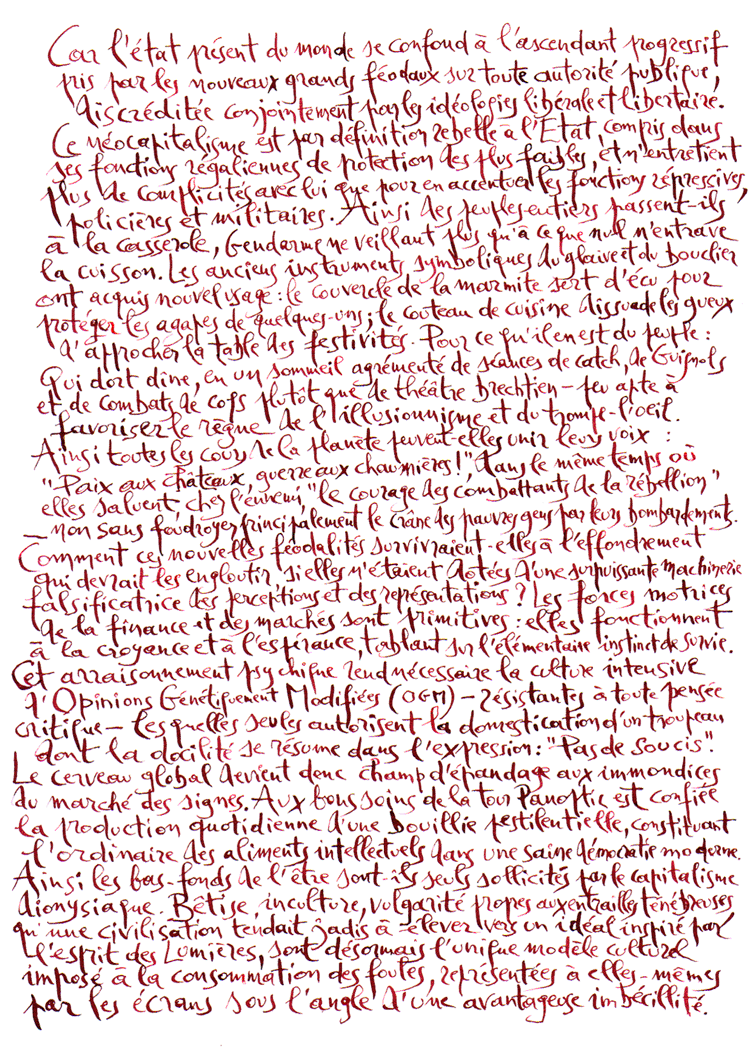 Car l'état présent du monde se confond à l'ascendant progressif
pris par les nouveaux grands féodaux sur toute autorité publique,
discréditée conjointement par les idéologies libérale et libertaire.
Ce néocapitalisme est par définition rebelle à l'Etat, compris dans
ses fonctions régaliennes de protection des plus faibles, et n'entretient
plus de complicités avec lui que pour en accentuer les fonctions répressives,
policières et militaires. Ainsi des peuples entiers passent-ils
à la casserole, Gendarme ne veillant plus qu'à ce que nul n'entrave
la cuisson. Les anciens instruments symboliques du glaive et du bouclier
ont acquis nouvel usage : le couvercle de la marmite sert d'écu pour
protéger les agapes de quelques-uns ; le couteau de cuisine dissuade les gueux
d'approcher la table des festivités. Pour ce qu'il en est du peuple :
Qui dort dîne, en un sommeil agrémenté de séances de catch, de Guignols
et de combats de coqs plutôt que de théâtre brechtien – peu apte à
favoriser le règne de l'illusionnisme et du trompe-l'oeil.
Ainsi toutes les cours de la planète peuvent-elles unir leurs voix :
"Paix aux châteaux, guerre aux chaumières !", dans le même temps où
elles saluent, chez l'ennemi, "le courage des combattants de la rébellion"
– non sans foudroyer principalement le crâne des pauvres gens par leurs bombardements.
Comment ces nouvelles féodalités survivraient-elles à l'effondrement
qui devrait les engloutir, si elles n'étaient dotées d'une surpuissante machinerie
falsificatrice des perceptions et des représentations ? Les forces motrices
de la finance et des marchés sont primitives : elles fonctionnent
à la croyance et à l'espérance, tablant sur l'élémentaire instinct de survie.
Cet arraisonnement psychique rend nécessaire la culture intensive
d'Opinions Génétiquement Modifiées (OGM) – résistantes à toute pensée
critique – lesquelles seules autorisent la domestication d'un troupeau
dont la docilité se résume dans l'expression : "Pas de soucis".
Le cerveau global devient donc champ d'épandage aux immondices
du marché des signes. Aux bons soins de la tour Panoptic est confiée
la production quotidienne d'une bouillie pestilentielle, constituant
l'ordinaire des aliments intellectuels dans une saine démocratie moderne.
Ainsi les bas-fonds de l'être sont-ils seuls sollicités par le capitalisme
dionysiaque. Bêtise, inculture, vulgarité propres aux entrailles ténébreuses
qu'une civilisation tendait jadis à élever vers un idéal inspiré par
l'esprit des Lumières, sont désormais l'unique modèle culturel
imposé à la consommation des foules, représentées à elles-mêmes
par les écrans sous l'angle d'une avantageuse imbécillité.